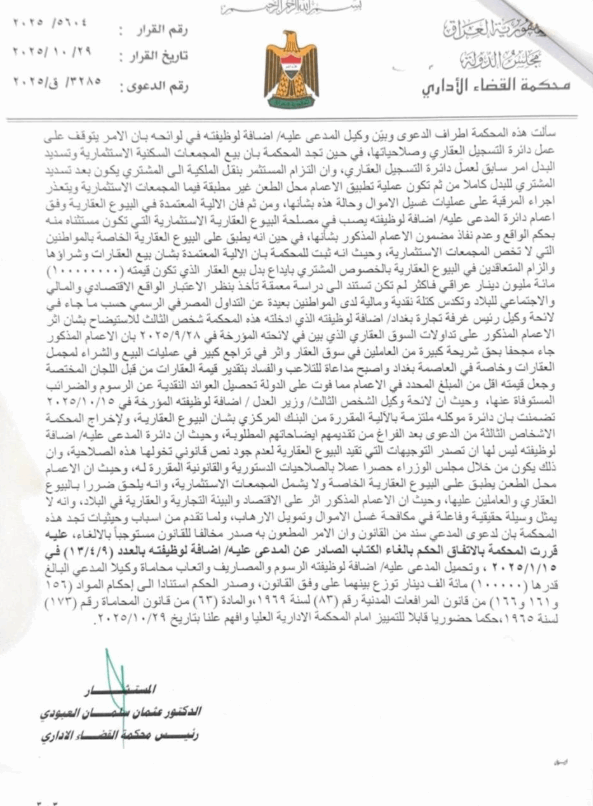 بسم الله الرحمن الرحيم
جمهورية العراق
مجلس الدولة
محكمة القضاء الأداري
رقم القرار : ٥٦٠٤/ ٢٠٢٥
تاريخ القرار : ٢٩/ ١٠/ ٢٠٢٥
رقم الدعوى : ٣٢٨٥/ ق/ ٢٠٢٥
سألت هذه المحكمة اطراف الدعوى وبيّن وكيل المدعى عليه/ اضافة لوظيفته في لوائحه بان الامر يتوقف على
عمل دائرة التسجيل العقاري وصلاحياتها، في حين تجد المحكمة بان بيع المجمعات السكنية الاستثمارية وتسديد
البدل امر سابق لعمل دائرة التسجيل العقاري، وان التزام المستثمر بنقل الملكية الى المشتري يكون بعد تسديد
المشتري للبدل كاملا من ثم تكون عملية تطبيق الاعمام محل الطعن غير مطبقة فيما المجمعات الاستثمارية ويتعذر
اجراء المرقبة على عمليات غسيل الاموال والحالة هذه بشأنها، ومن ثم فان الالية المعتمدة في البيوع العقارية وفق
اعمام دائرة المدعى عليه/ اضافة لوظيفته يصب في مصلحة البيوع العقارية الاستثمارية التي تكون مستثناه منه
بحكم الواقع وعدم نفاذ مضمون الاعمام المذكور بشأنها، في حين انه يطبق على البيوع العقارية الخاصة بالمواطنين
التي لا تخص المجمعات الاستثمارية، وحيث انه ثبت للمحكمة بان الالية المعتمدة بشان بيع العقارات وشراؤها
والزام المتعاقدين في البيوع العقارية بالخصوص المشتري بايداع بدل بيع العقار الذي تكون قيمته (١٠٠٠٠٠٠٠٠)
مائة مليون دينار عراقي فاكثر لم تكن تستند الى دراسة معمقة تأخذ بنظر الاعتبار الواقع الاقتصادي والمالي
والاجتماعي للبلاد وتكدس كتلة نقدية ومالية لدى المواطنين بعيدة عن التداول المصرفي الرسمي حسب ما جاء في
لائحة وكيل رئيس غرفة تجارة بغداد/ اضافة لوظيفته الذي ادخلته هذه المحكمة شخص الثالث للاستيضاح بشان اثر
الاعمام المذكور على تداولات السوق العقاري الذي بين في لائحته المؤرخة في ٢٠٢٥/٩/٢٨ بان الاعمام المذكور
جاء مجحفا بحق شريحة كبيرة من العاملين في سوق العقار واثر في تراجع كبير في عمليات البيع والشراء لمجمل
العقارات وخاصة في العاصمة بغداد واصبح مدعاة للتلاعب والفساد بتقدير قيمة العقارات من قبل اللجان المختصة
وجعل قيمته اقل من المبلغ المحدد في الاعمام مما فوت على الدولة تحصيل العوائد النقدية عن الرسوم والضرائب
المستوفاة عنها، وحيث ان لائحة وكيل الشخص الثالث/ وزير العدل / اضافة لوظيفته المؤرخة في ٢٠٢٥/١٠/١٥
تضمنت بان دائرة موكله ملتزمة بالألية المقررة من البنك المركزي بشان البيوع العقارية، ولإخراج المحكمة
الاشخاص الثالثة من الدعوى بعد الفراغ من تقديمهم ايضاحاتهم المطلوبة، وحيث ان دائرة المدعى عليه/ اضافة
لوظيفته ليس لها ان تصدر التوجيهات التي تقيد البيوع العقارية لعدم جود نص قانوني تخولها هذه الصلاحية، وان
ذلك يكون من خلال مجلس الوزراء حصرا عملا بالصلاحيات الدستورية والقانونية المقررة له، وحيث ان الاعمام
محل الطعن يطبق على البيوع العقارية الخاصة ولا يشمل المجمعات الاستثمارية، وانه يلحق ضررا بالبيوع
العقاري والعاملين عليها، وحيث ان الاعمام المذكور اثر على الاقتصاد والبيئة التجارية والعقارية في البلاد، وانه لا
يمثل وسيلة حقيقية وفاعلة في مكافحة غسل الاموال وتمويل الارهاب، ولما تقدم من اسباب وحيثيات تجد هذه
المحكمة بان لدعوى المدعي سند من القانون وان الامر المطعون به صدر مخالفا للقانون مستوجباً بالالغاء، عليه
قررت المحكمة بالاتفاق الحكم بالغاء الكتاب الصادر عن المدعى عليه/ اضافة لوظيفته بالعدد (١٣/٤/٩) في
٢٠٢٥/١/١٥ ، وتحميل المدعى عليه/ اضافة لوظيفته الرسوم والمصاريف واتعاب محاماة وكيلا المدعي البالغ
قدرها (١٠٠٠٠٠) مائة الف دينار توزع بينهما على وفق القانون، وصدر الحكم استنادا الى إحكام المواد (١٥٦
و١٦١ و١٦٦) من قانون المرافعات المدنية رقم (٨٣) لسنة ١٩٦٩،والمادة (٦٣) من قانون المحاماة رقم (١٧٣)
لسنة ١٩٦٥،حكما حضوريا قابلا للتمييز امام المحكمة الادارية العليا وافهم علنا بتاريخ ٢٠٢٥/١٠/٢٩.
المستشار
الدكتور عثمان سلمان العبودي
رئيس محكمة القضاء الاداري
٢ - ٢